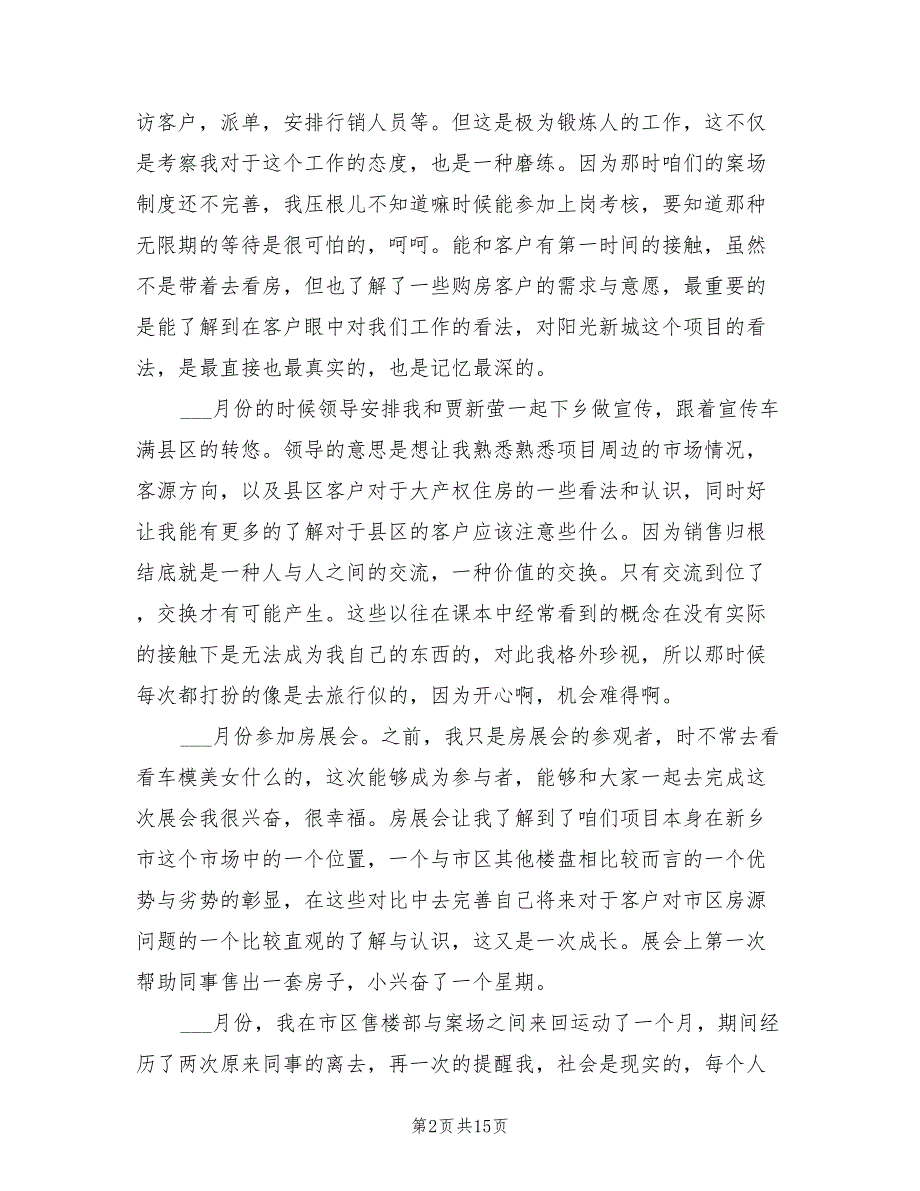 访客户，派单，安排行销人员等。但这是极为锻炼人的工作，这不仅
是考察我对于这个工作的态度，也是一种磨练。因为那时咱们的案场
制度还不完善，我压根儿不知道嘛时候能参加上岗考核，要知道那种
无限期的等待是很可怕的，呵呵。能和客户有第一时间的接触，虽然
不是带着去看房，但也了解了一些购房客户的需求与意愿，最重要的
是能了解到在客户眼中对我们工作的看法，对阳光新城这个项目的看
法，是最直接也最真实的，也是记忆最深的。
___月份的时候领导安排我和贾新萤一起下乡做宣传，跟着宣传车
满县区的转悠。领导的意思是想让我熟悉熟悉项目周边的市场情况，
客源方向，以及县区客户对于大产权住房的一些看法和认识，同时好
让我能有更多的了解对于县区的客户应该注意些什么。因为销售归根
结底就是一种人与人之间的交流，一种价值的交换。只有交流到位了
，交换才有可能产生。这些以往在课本中经常看到的概念在没有实际
的接触下是无法成为我自己的东西的，对此我格外珍视，所以那时候
每次都打扮的像是去旅行似的，因为开心啊，机会难得啊。
___月份参加房展会。之前，我只是房展会的参观者，时不常去看
看车模美女什么的，这次能够成为参与者，能够和大家一起去完成这
次展会我很兴奋，很幸福。房展会让我了解到了咱们项目本身在新乡
市这个市场中的一个位置，一个与市区其他楼盘相比较而言的一个优
势与劣势的彰显，在这些对比中去完善自己将来对于客户对市区房源
问题的一个比较直观的了解与认识，这又是一次成长。展会上第一次
帮助同事售出一套房子，小兴奋了一个星期。
___月份，我在市区售楼部与案场之间来回运动了一个月，期间经
历了两次原来同事的离去，再一次的提醒我，社会是现实的，每个人
第2页共15页